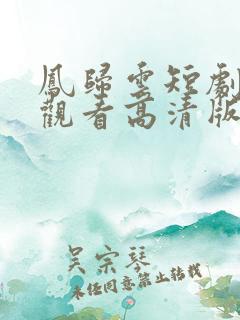 鳳歸雲短劇
觀看高清版
吴宗琴
未经同意禁止转载